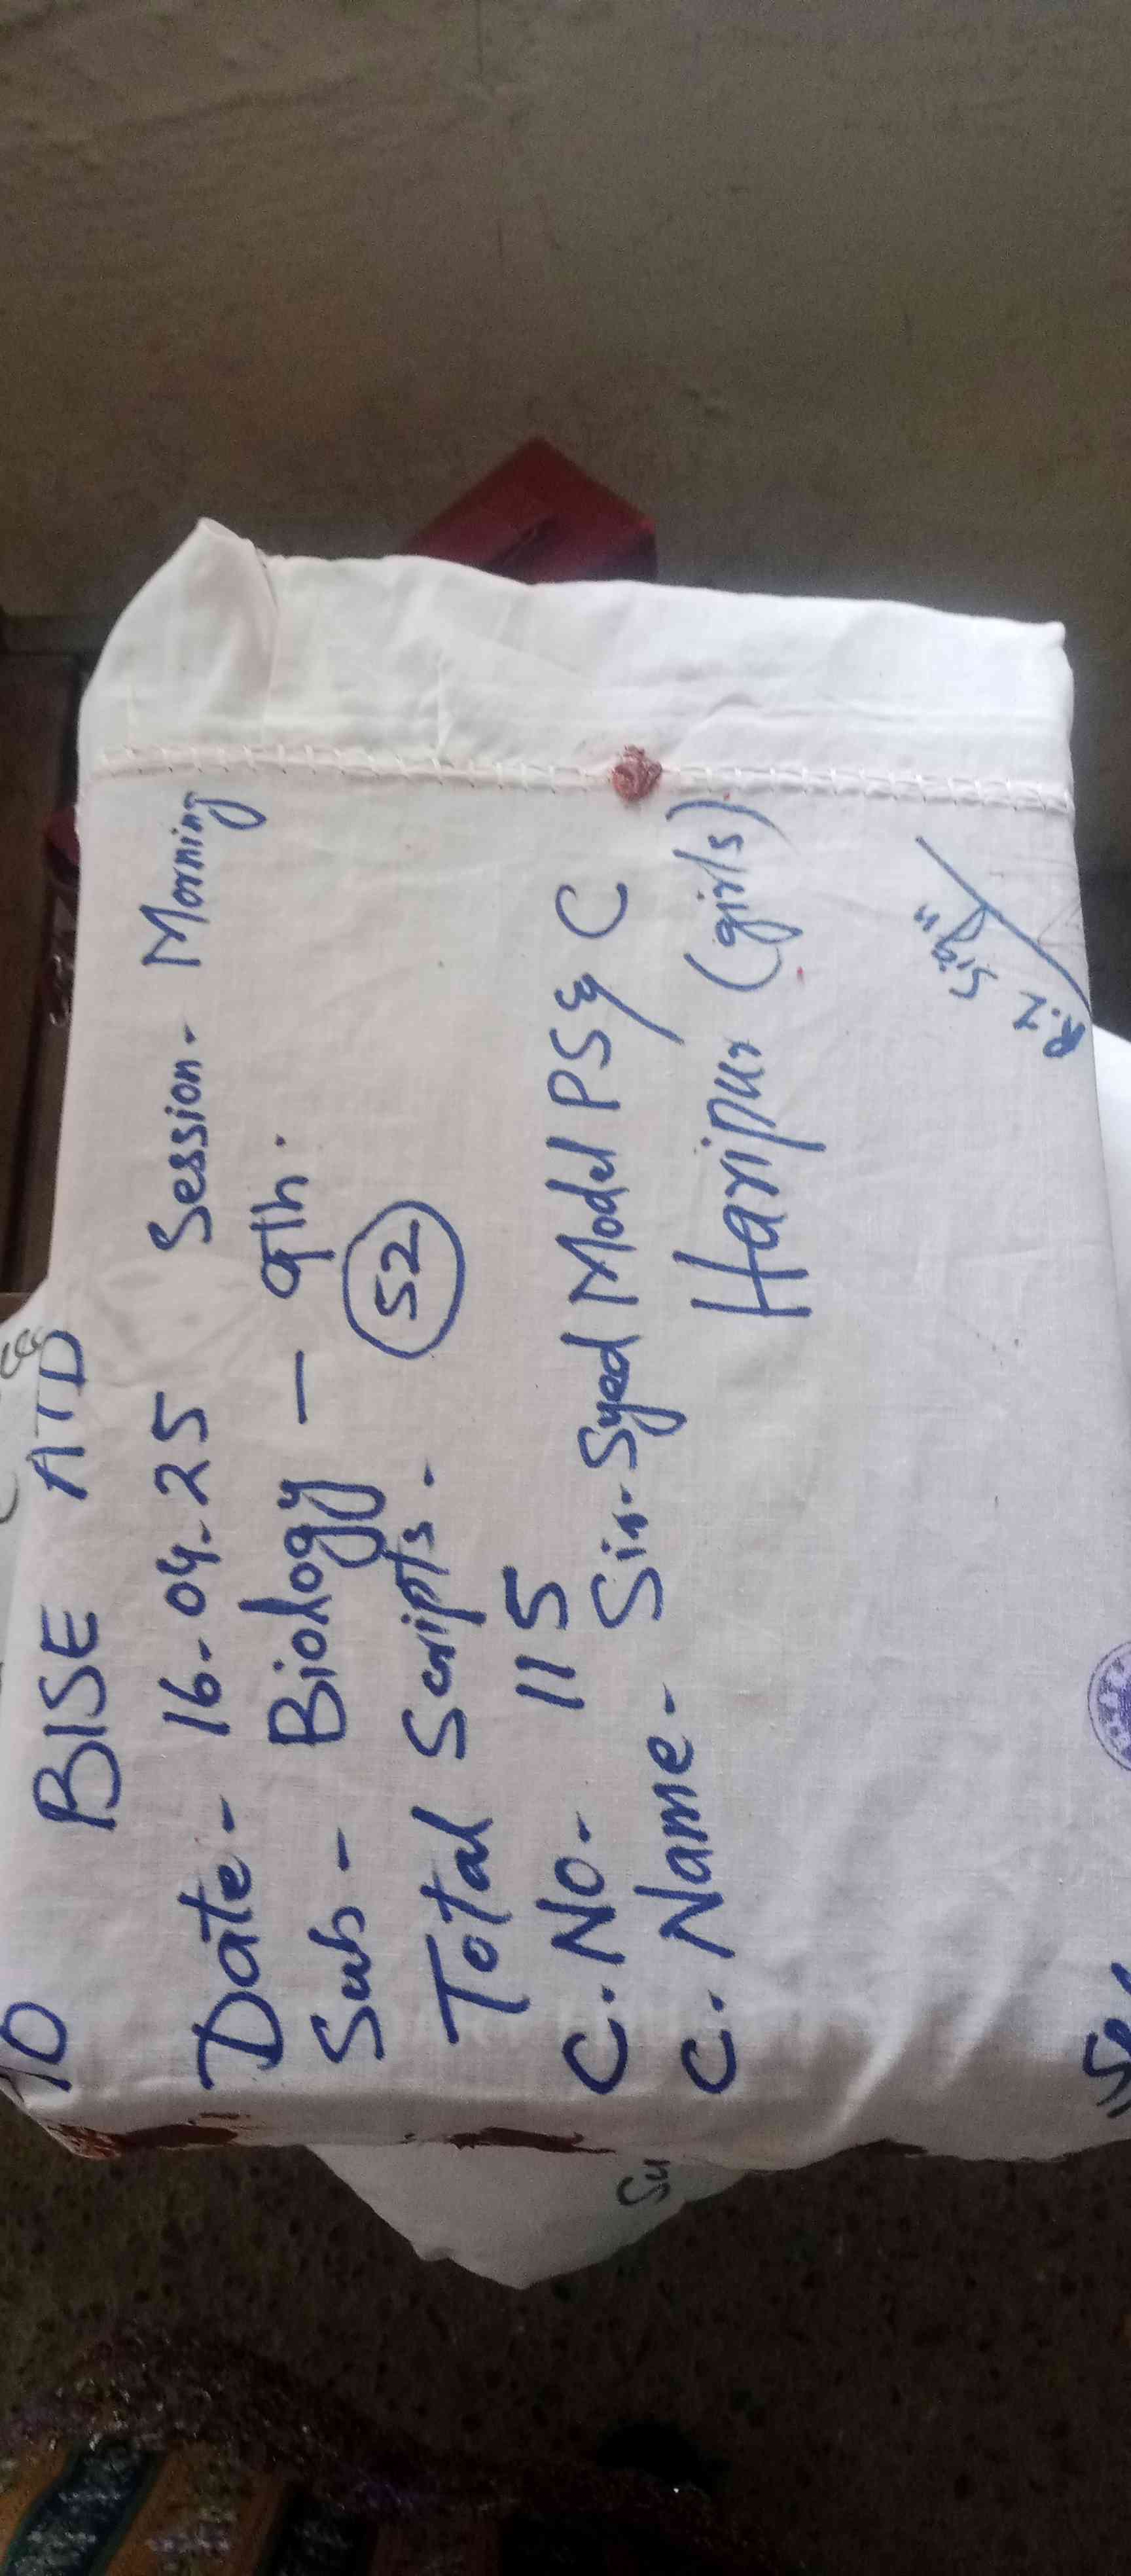 TO BISE ATD
Date - 16-04-25 Session - Morning
Sub - Biology — 9th.
Total Scripts. 52
C. No - 115
C. Name - Sir Syed Model PS & C
Haripur (girls)
R.I Sign
Su